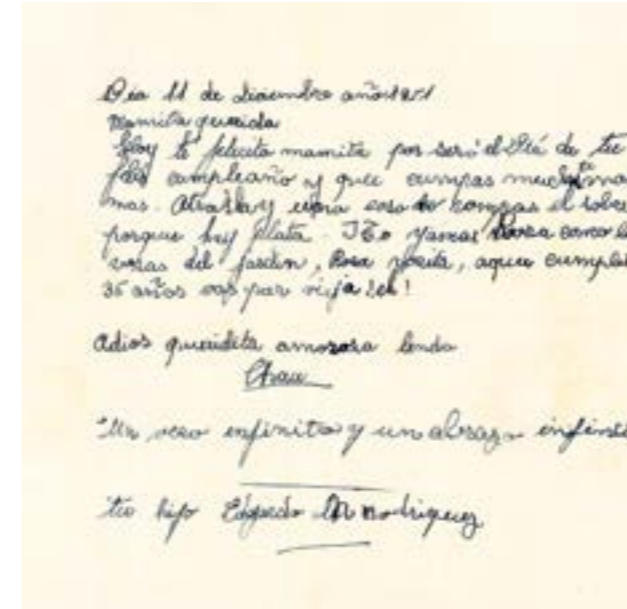 Dia 11 de diciembre año 1951
Mamita querida
Hoy te felicito mamita por ser el Diá de tu
felis cumpleaño y que cumpas
mas. Atras hay una cosa no rompas el sobre
porque hay plata. Te yamas Rosa como la
rosas del jardin, Rosa rosita, aquee cumples
35 años vas par vieja! eh!
Adios queridita amorosa linda
Chau
Un veso enfinito y un abrazo
tu hijo Edgardo M rodriguez